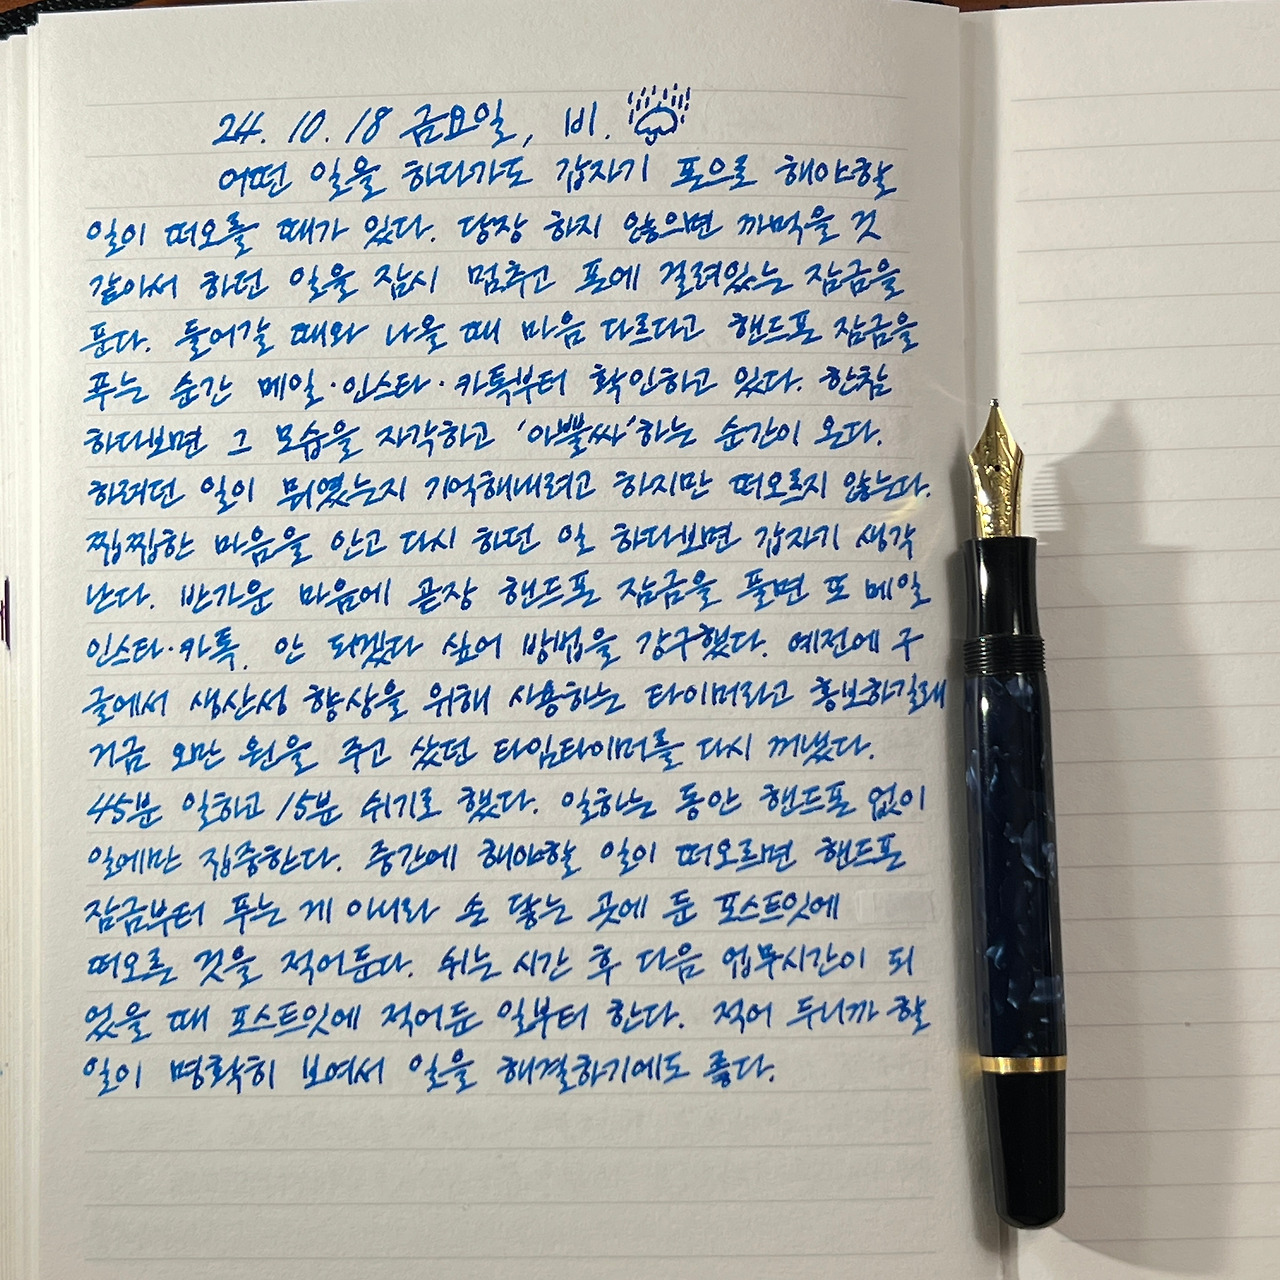 24. 10. 18 금요일, 비.
어떤 일을 하다가도 갑자기 폰으로 해야할
일이 떠오를 때가 있다. 당장 하지 않으면 까먹을 것
같아서 하던 일을 잠시 멈추고 폰에 걸려있는 잠금을
푼다. 들어갈 때와 나올 때 마음 다르다고 핸드폰 잠금을
푸는 순간 메일·인스타·카톡부터 확인하고 있다. 한참
하다보면 그 모습을 자각하고 '아뿔싸'하는 순간이 온다.
하려던 일이 뭐였는지 기억해내려고 하지만 떠오르지 않는다.
찝찝한 마음을 안고 다시 하던 일 하다보면 갑자기 생각
난다. 반가운 마음에 곧장 핸드폰 잠금을 풀면 또 메일
인스타·카톡. 안 되겠다 싶어 방법을 강구했다. 예전에 구
글에서 생산성 향상을 위해 사용하는 타이머라고 홍보하길래
거금 오만 원을 주고 샀던 타임타이머를 다시 꺼냈다.
45분 일하고 15분 쉬기로 했다. 일하는 동안 핸드폰 없이
일에만 집중한다. 중간에 해야할 일이 떠오르면 핸드폰
잠금부터 푸는 게 아니라 손 닿는 곳에 둔 포스트잇에
떠오른 것을 적어둔다. 쉬는 시간 후 다음 업무시간이 되
었을 때 포스트잇에 적어둔 일부터 한다. 적어 두니까 할
일이 명확히 보여서 일을 해결하기에도 좋다.